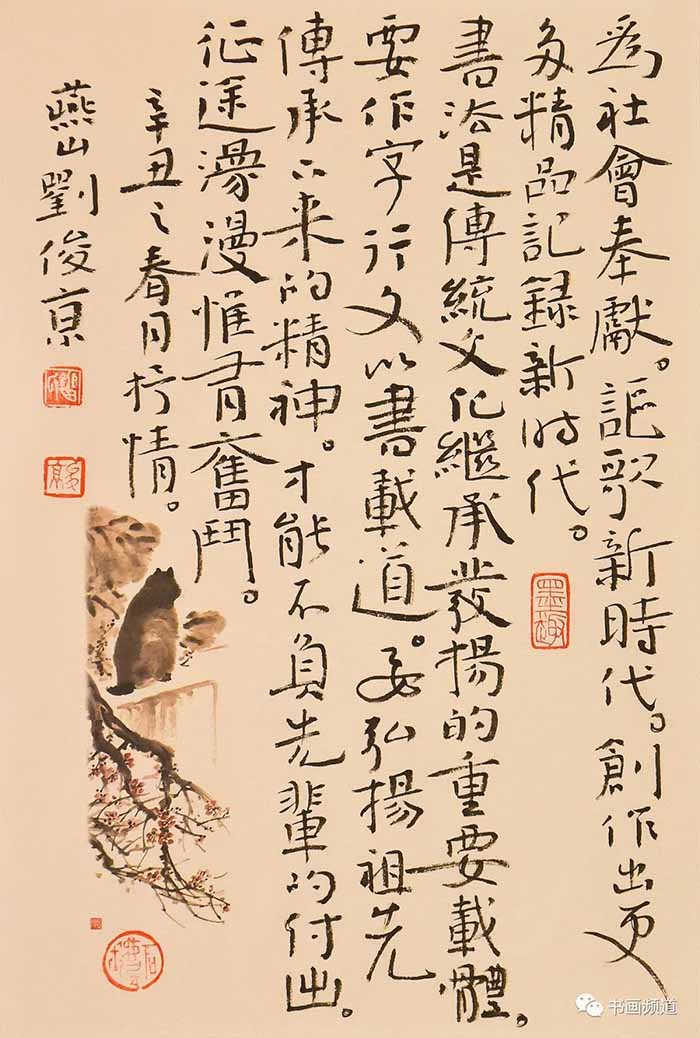 為社會奉獻。謳歌新時代。創作出更
多精品記録新时代。
墨趣
書法是傳統文化繼承發揚的重要載體。
要作字行文以書載道。要弘揚祖先
傳承下来的精神。才能不負先輩的付出。
征途漫漫惟有奮鬥。
辛丑之春月抒情。
燕山劉俊京
书画频道